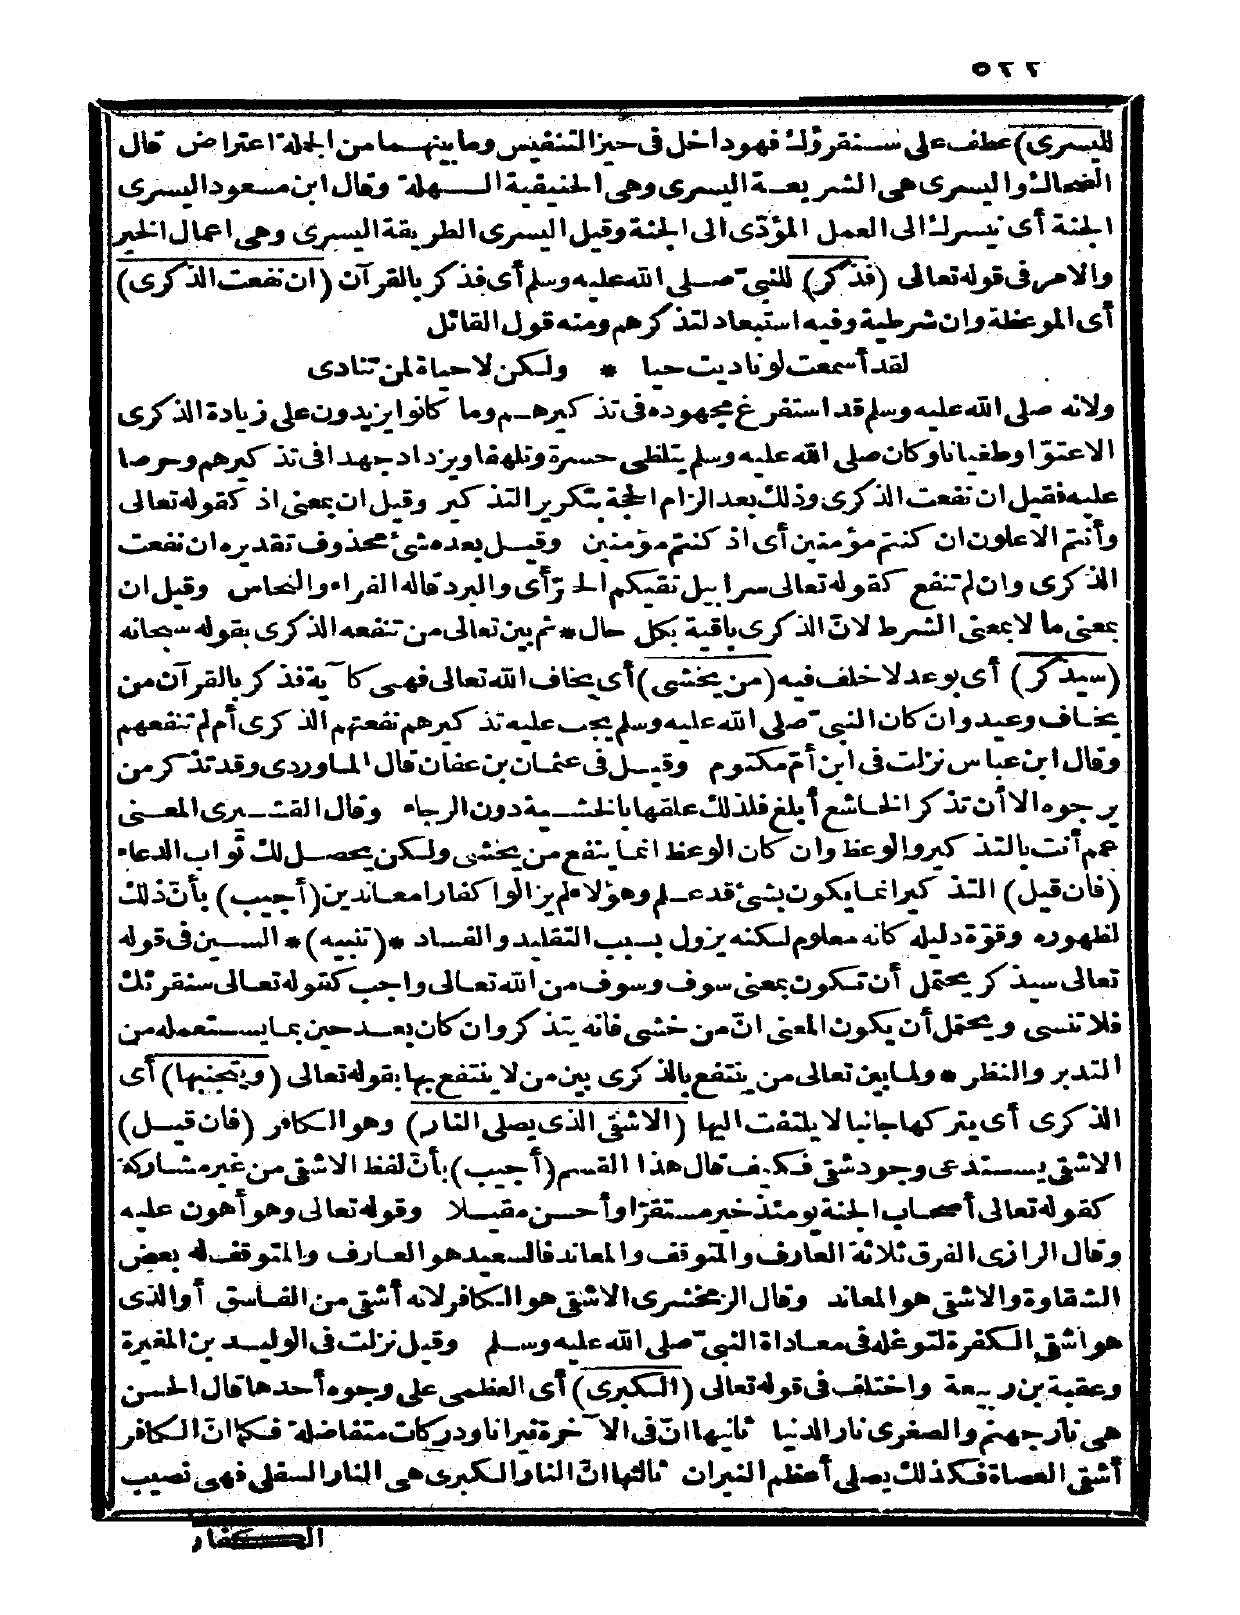 ٥٢٢
لليسرى) عطف على سنقرؤك فهو داخل فى حيز التنفيس وما بينهما من الجملة اعتراض قال
الضحاك واليسرى هى الشريعة اليسرى وهى الحنيفية السهلة وقال ابن مسعود اليسرى
الجنة أى نيسرك الى العمل المؤدّى الى الجنة وقيل اليسرى الطريقة اليسرى وهى اعمال الخير
والامر فى قوله تعالى (فذكر) للنبىّ صلى الله عليه وسلم أى فذكر بالقرآن (ان نفعت الذكرى)
أى الموعظة وان شرطية وفيه استبعاد لتذكرهم ومنه قول القائل
لقد أسمعت لو ناديت حيا * ولكن لا حياة لمن تنادى
ولانه صلى الله عليه وسلم قد استفرغ مجهوده فى تذكيرهم وما كانوا يزيدون على زيادة الذكرى
الا عتوّا وطغيانا وكان صلى الله عليه وسلم يتلظى حسرة وتلهفا ويزداد جهدا فى تذكيرهم وحرصا
عليه فقيل ان نفعت الذكرى وذلك بعد الزام الحجة بتكرير التذكير وقيل ان بمعنى اذ كقوله تعالى
وأنتم الاعلون ان كنتم مؤمنين أى اذ كنتم مؤمنين وقيل بعده شئ محذوف تقديره ان نفعت
الذكرى وان لم تنفع كقوله تعالى سرابيل تقيكم الحرّ أى والبرد قاله الفراء والنحاس وقيل ان
بمعنى ما لا بمعنى الشرط لانّ الذكرى باقية بكل حال * ثم بين تعالى من تنفعه الذكرى بقوله سبحانه
(سيذكر) أى بوعد لا خلف فيه (من يخشى) أى يخاف الله تعالى فهى كآية فذكر بالقرآن من
يخاف وعيد وان كان النبىّ صلى الله عليه وسلم يجب عليه تذكيرهم نفعتهم الذكرى أم لم تنفعهم
وقال ابن عباس نزلت فى ابن أمّ مكتوم وقيل فى عثمان بن عفان قال الماوردى وقد تذكر من
يرجوه الا أن تذكر الخاشع أبلغ فلذلك علقها بالخشية دون الرجاء وقال القشيرى المعنى
عمم أنت بالتذكير والوعظ وان كان الوعظ انما ينفع من يخشى ولكن يحصل لك ثواب الدعاء
(فان قيل) التذكير انما يكون بشئ قد علم وهؤلاء لم يزالوا كفارا معاندين (أجيب) بأنّ ذلك
لظهوره وقوّة دليله كانه معلوم لكنه يزول بسبب التقليد والفساد *(تنبيه)* السين فى قوله
تعالى سيذكر يحتمل أن تكون بمعنى سوف وسوف من الله تعالى واجب كقوله تعالى سنقرئك
فلا تنسى ويحتمل أن يكون المعنى انّ من خشى فانه يتذكر وان كان بعد حين بما يستعمله من
التدبر والنظر * ولما بين تعالى من ينتفع بالذكرى بين من لا ينتفع بها بقوله تعالى (ويتجنبها) أى
الذكرى أى يتركها جانبا لا يلتفت اليها (الاشقى الذى يصلى النار) وهو الكافر (فان قيل)
الاشقى يستدعى وجود شقى فكيف قال هذا القسم (أجيب) بأنّ لفظ الاشقى من غير مشاركة
كقوله تعالى أصحاب الجنة يومئذ خير مستقرّا وأحسن مقيلا وقوله تعالى وهو أهون عليه
وقال الرازى الفرق ثلاثة العارف والمتوقف والمعاند فالسعيد هو العارف والمتوقف له بعض
الشقاوة والاشقى هو المعاند وقال الزمخشرى الاشقى هو الكافر لانه أشقى من الفاسق أو الذى
هو اشقى الكفرة لتوغله فى معاداة النبىّ صلى الله عليه وسلم وقيل نزلت فى الوليد بن المغيرة
وعقبة بن ربيعة واختلف فى قوله تعالى (الكبرى) أى العظمى على وجوه أحدها قال الحسن
هى نار جهنم والصغرى نار الدنيا ثانيها انّ فى الآخرة نيرانا ودركات متفاضلة فكما انّ الكافر
أشقى العصاة فكذلك يصلى أعظم النيران ثالثها انّ النار الكبرى هى النار السفلى فهى نصيب
الكفار